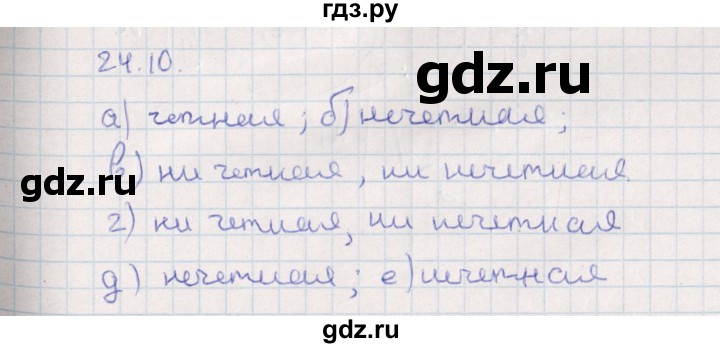 гдз.ру
24.10.
gdz.ru
а) четная; б) нечетная;
в) ни четная, ни нечетная
gdz.ru
г) ни четная, ни нечетная
д) нечетная; е) нечетная
gdz.ru